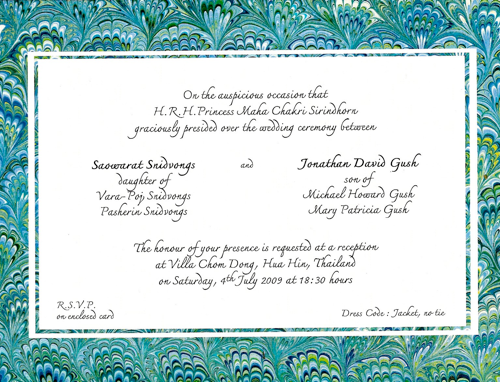 On the auspicious occasion that
H.R.H.Princess Maha Chakri Sirindhorn
graciously presided over the wedding ceremony between
Saowarat Snidvongs and Jonathan David Gush
daughter of son of
Vara-Poj Snidvongs Michael Howard Gush
Pasherin Snidvongs Mary Patricia Gush
The honour of your presence is requested at a reception
at Villa Chom Dong, Hua Hin, Thailand
on Saturday, 4th July 2009 at 18:30 hours
R.S.V.P.
on enclosed card Dress Code : Jacket, no tie